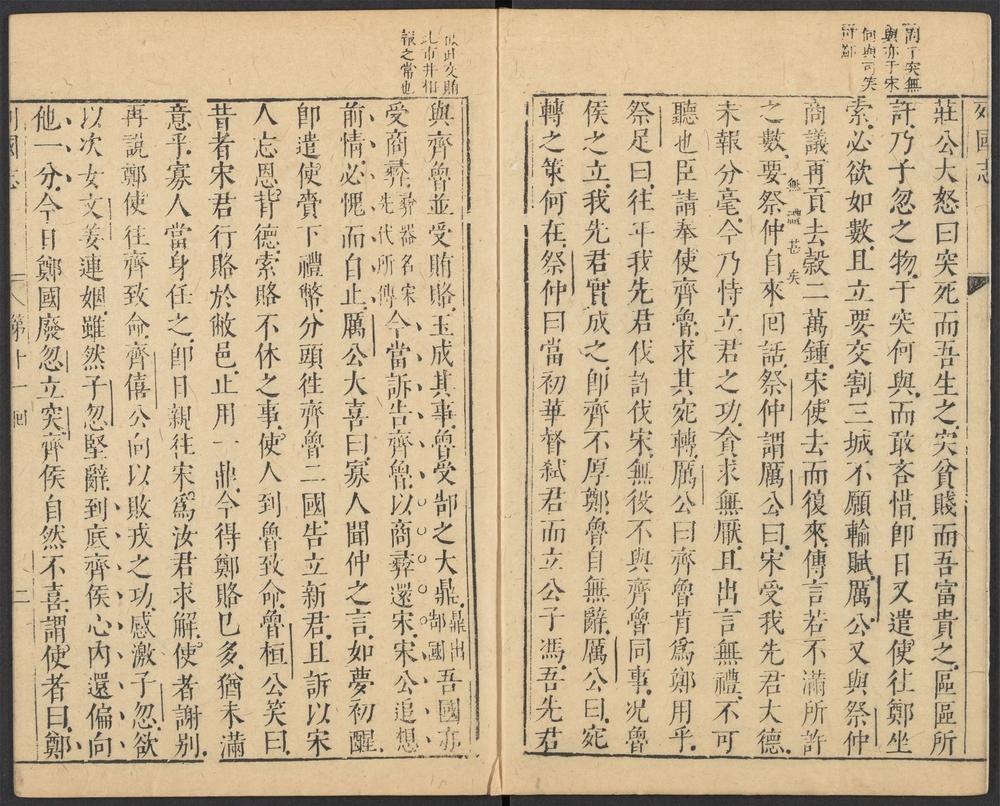 列國志
問了突無
與亦于宋
何與可笑
可鄙
莊公大怒曰突死而吾生之突貧賤而吾富貴之區區所
許乃子忽之物于突何與而敢吝惜卽日又遣使往鄭坐
索必欲如數且立要交割三城不願輸賦厲公又與祭仲
商議再貢去穀二萬鍾宋使去而復來傳言若不滿所許
之數要祭仲自來回話祭仲謂厲公曰宋受我先君大德
無禮甚矣
未報分毫今乃恃立君之功貪求無厭且出言無禮不可
聽也臣請奉使齊魯求其宛轉厲公曰齊魯肯爲鄭用乎
祭足曰往年我先君伐許伐宋無役不與齊魯同事況魯
侯之立我先君實成之卽齊不厚鄭魯自無辭厲公曰宛
轉之策何在祭仲曰當初華督弒君而立公子馮吾先君
彼此交賄
此市井相
報之常也
與齊魯並受賄賂玉成其事魯受郜之大鼎鼎出郜國吾國亦
受商彞彞器名宋先代所傳今當訴告齊魯以商彞還宋宋公追想
前情必愧而自止厲公大喜曰寡人聞仲之言如夢初醒
卽遣使賫下禮幣分頭徃齊魯二國告立新君且訴以宋
人忘恩背德索賂不休之事使人到魯致命魯桓公笑曰
昔者宋君行賂於敝邑止用一鼎今得鄭賂已多猶未滿
意乎寡人當身任之卽日親往宋爲汝君求解使者謝別
再說鄭使往齊致命齊僖公向以敗戎之功感激子忽欲
以次女文姜連姻雖然子忽堅辭到底齊侯心內還偏向
他一分今日鄭國廢忽立突齊侯自然不喜謂使者曰鄭
列國志
第十一回
二